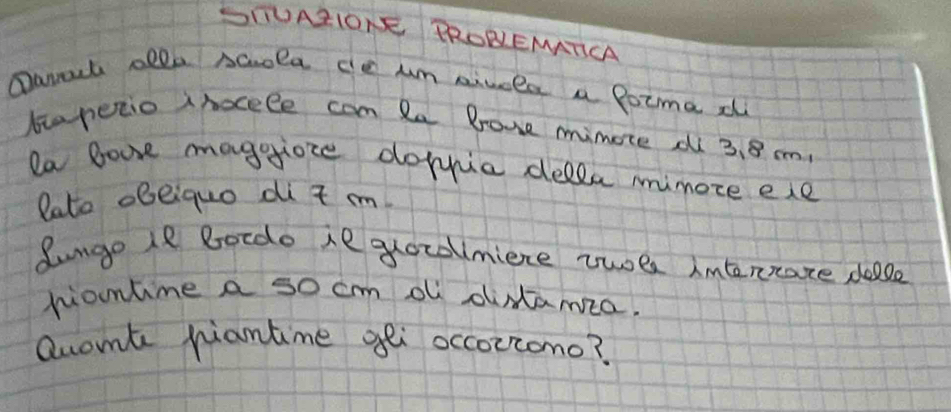 SITUAZIONE PROBLEMATICA
Davanti alla scuola c'è un aiuola a forma di
trapezio isocele con la base minore di 3,8 m,
la base maggiore doppia della minore e il
lato obliquo di 7 m.
Lungo il bordo il giardiniere vuole interrare delle
piantine a 50 cm di distanza.
Quante piantine gli occorrono?